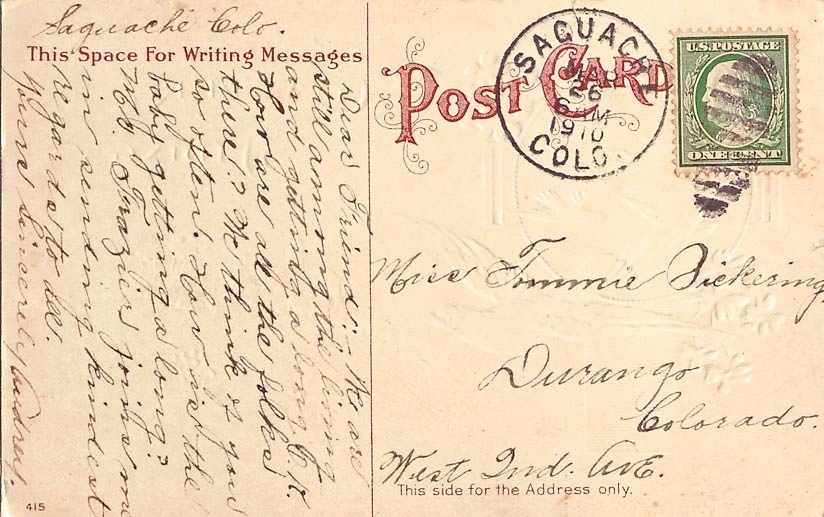 Saguache Colo.
This Space For Writing Messages
Dear Friend:- We are
still among the living
and getting along O.K.
How are all the folks
there? We think of you
so often. How is the
baby getting along?
Mrs. Frazier joins me
in sending kindest
regards to all.
Yours Sincerely Audrey.
415
POST CARD
SAGUACHE
MAR
26
6 PM
1910
COLO.
U.S. POSTAGE
ONE CENT
Miss Tommie Pickering
Durango
Colorado.
West 2nd. Ave.
This side for the Address only.